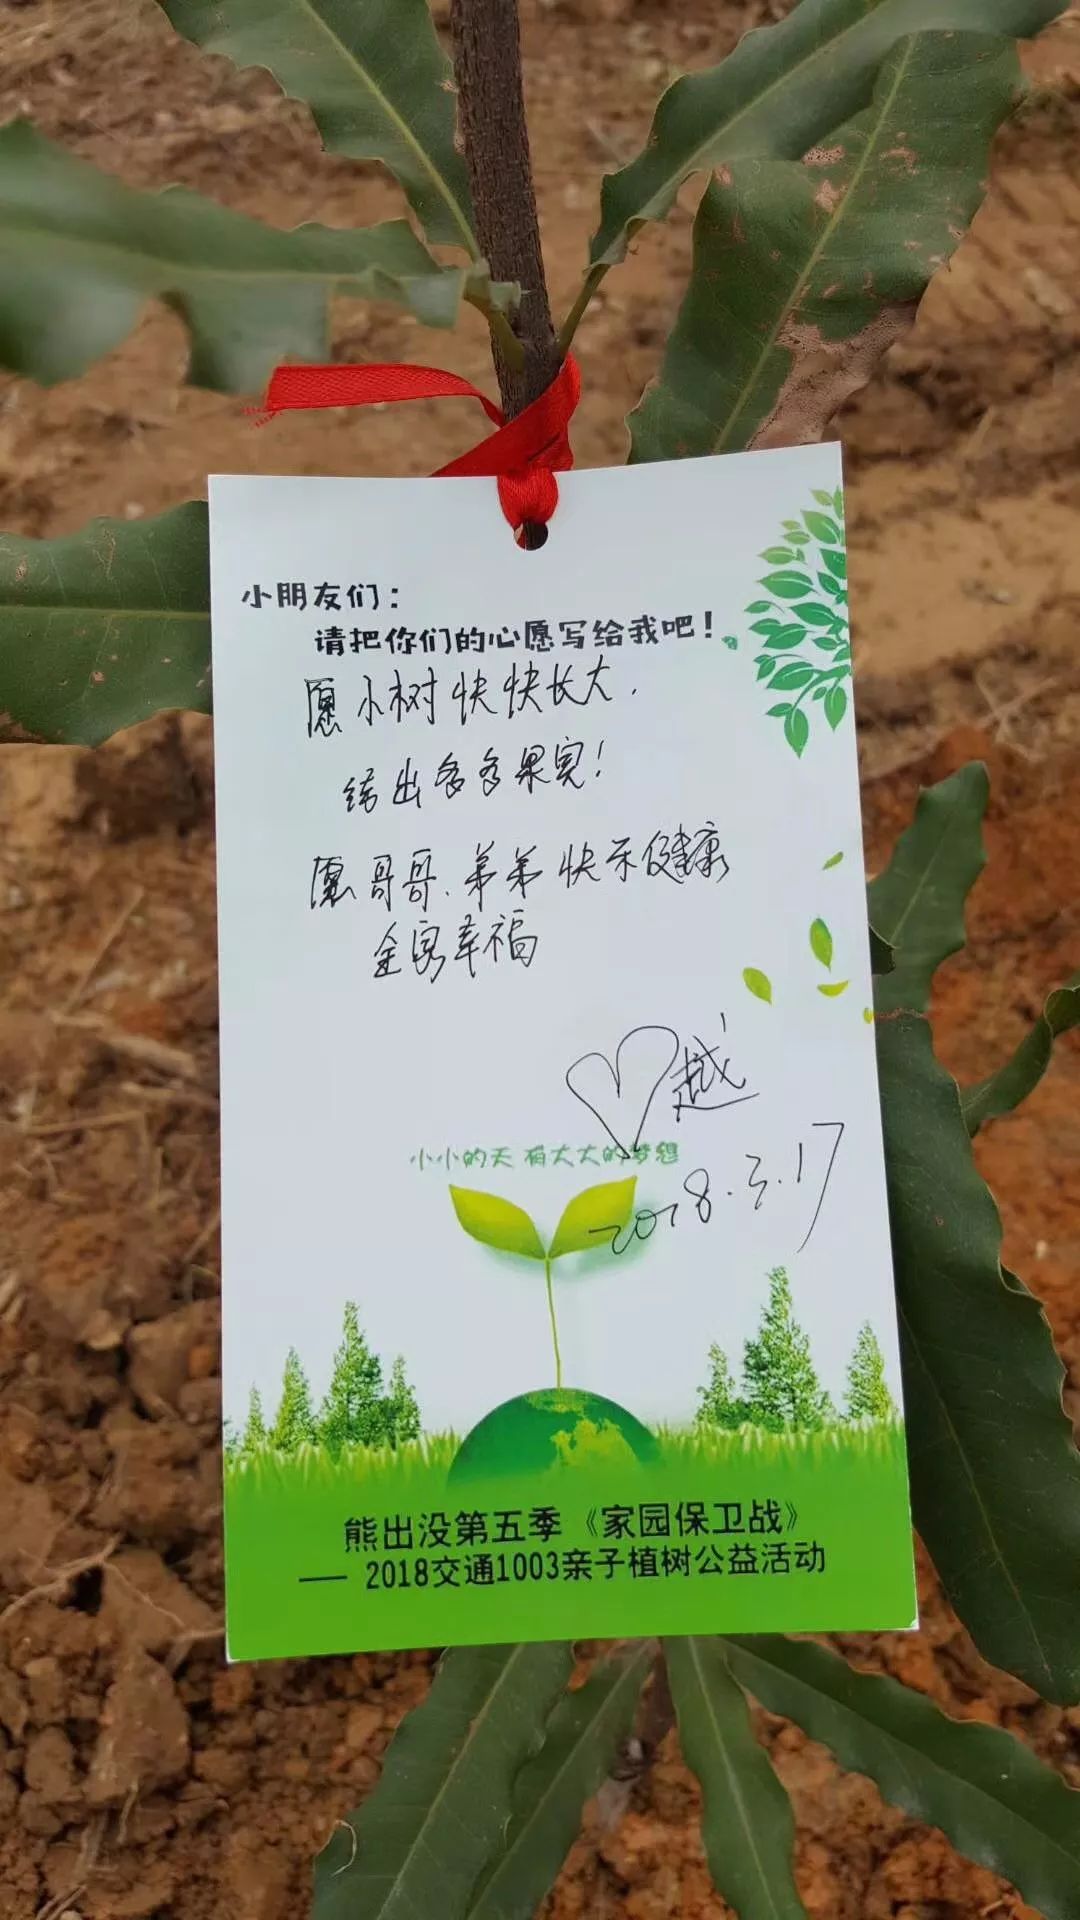 小朋友们：
请把你们的心愿写给我吧！
愿小树快快长大，
结出多多果实！
愿哥哥、弟弟快乐健康
全家幸福
越
小小的天 有大大的梦想
2018.3.17
熊出没第五季《家园保卫战》
—— 2018交通1003亲子植树公益活动